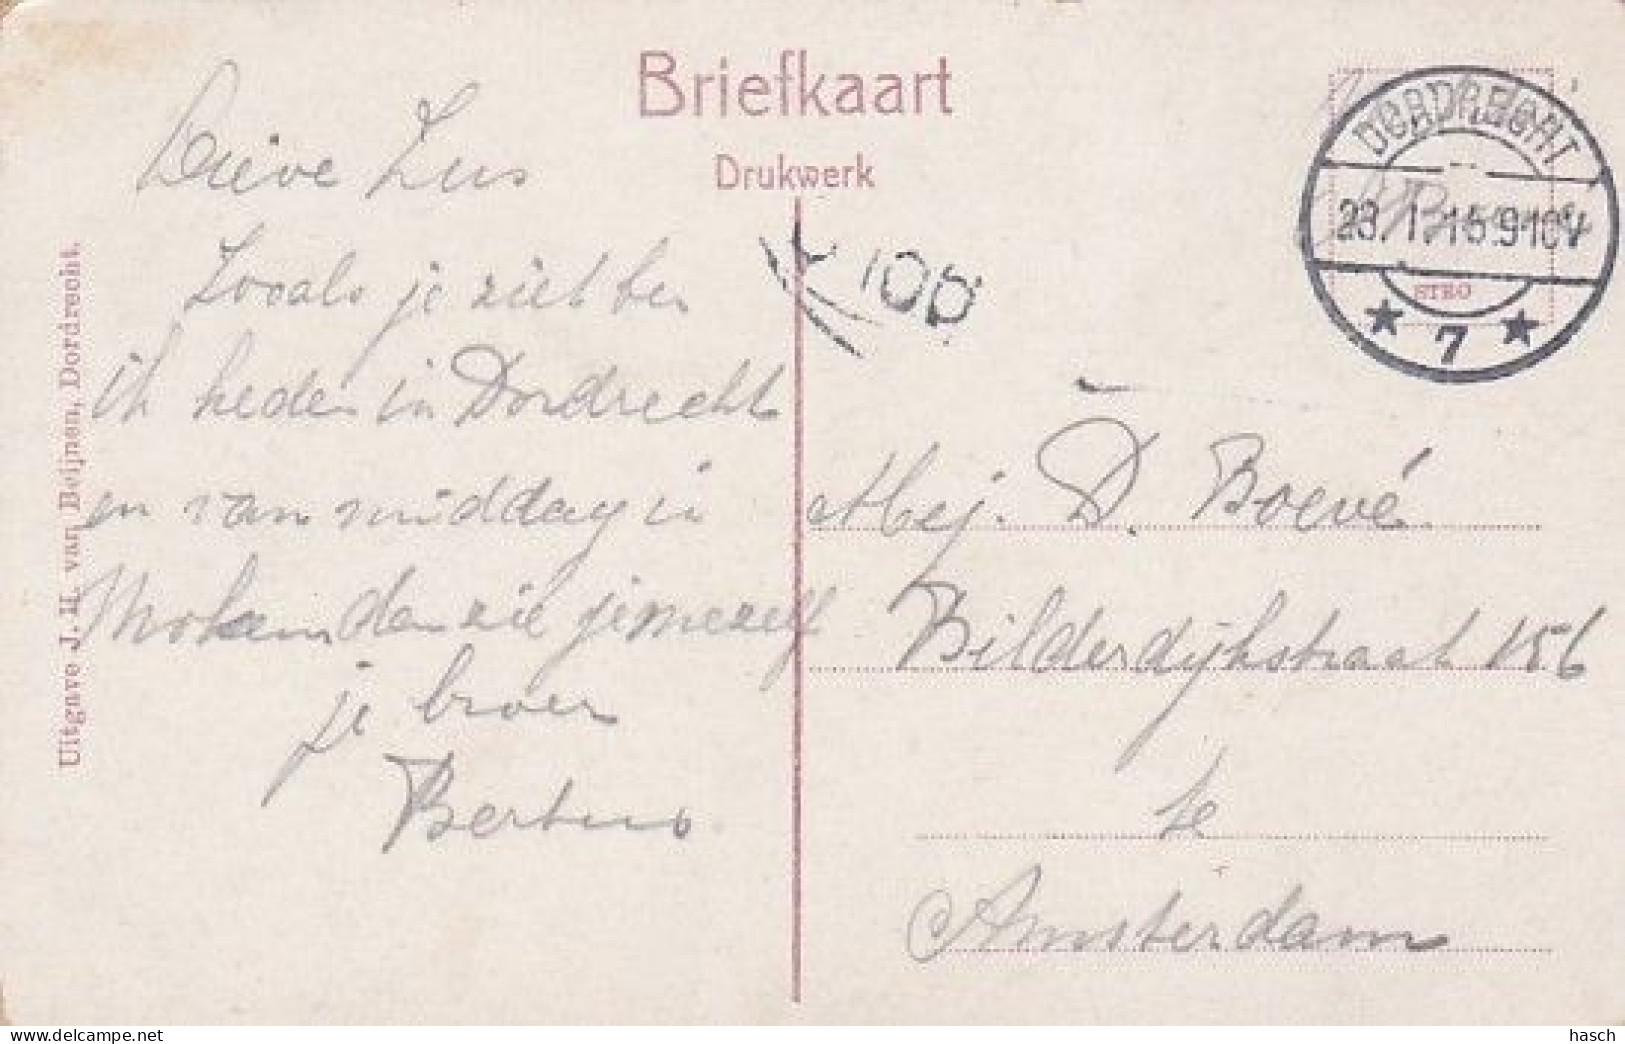 Briefkaart
Drukwerk
Lieve Zus
Zooals je ziet ben
ik heden in Dordrecht
en van middag in
den zie je me zelf
je broer
Bertus
Uitgave J. H. van Beijnen, Dordrecht.
DORDRECHT
23. 1. 16. 9-10V
STRO
7
Mej. D. Boevé
Bilderdijkstraat 156
te
Amsterdam
hasch